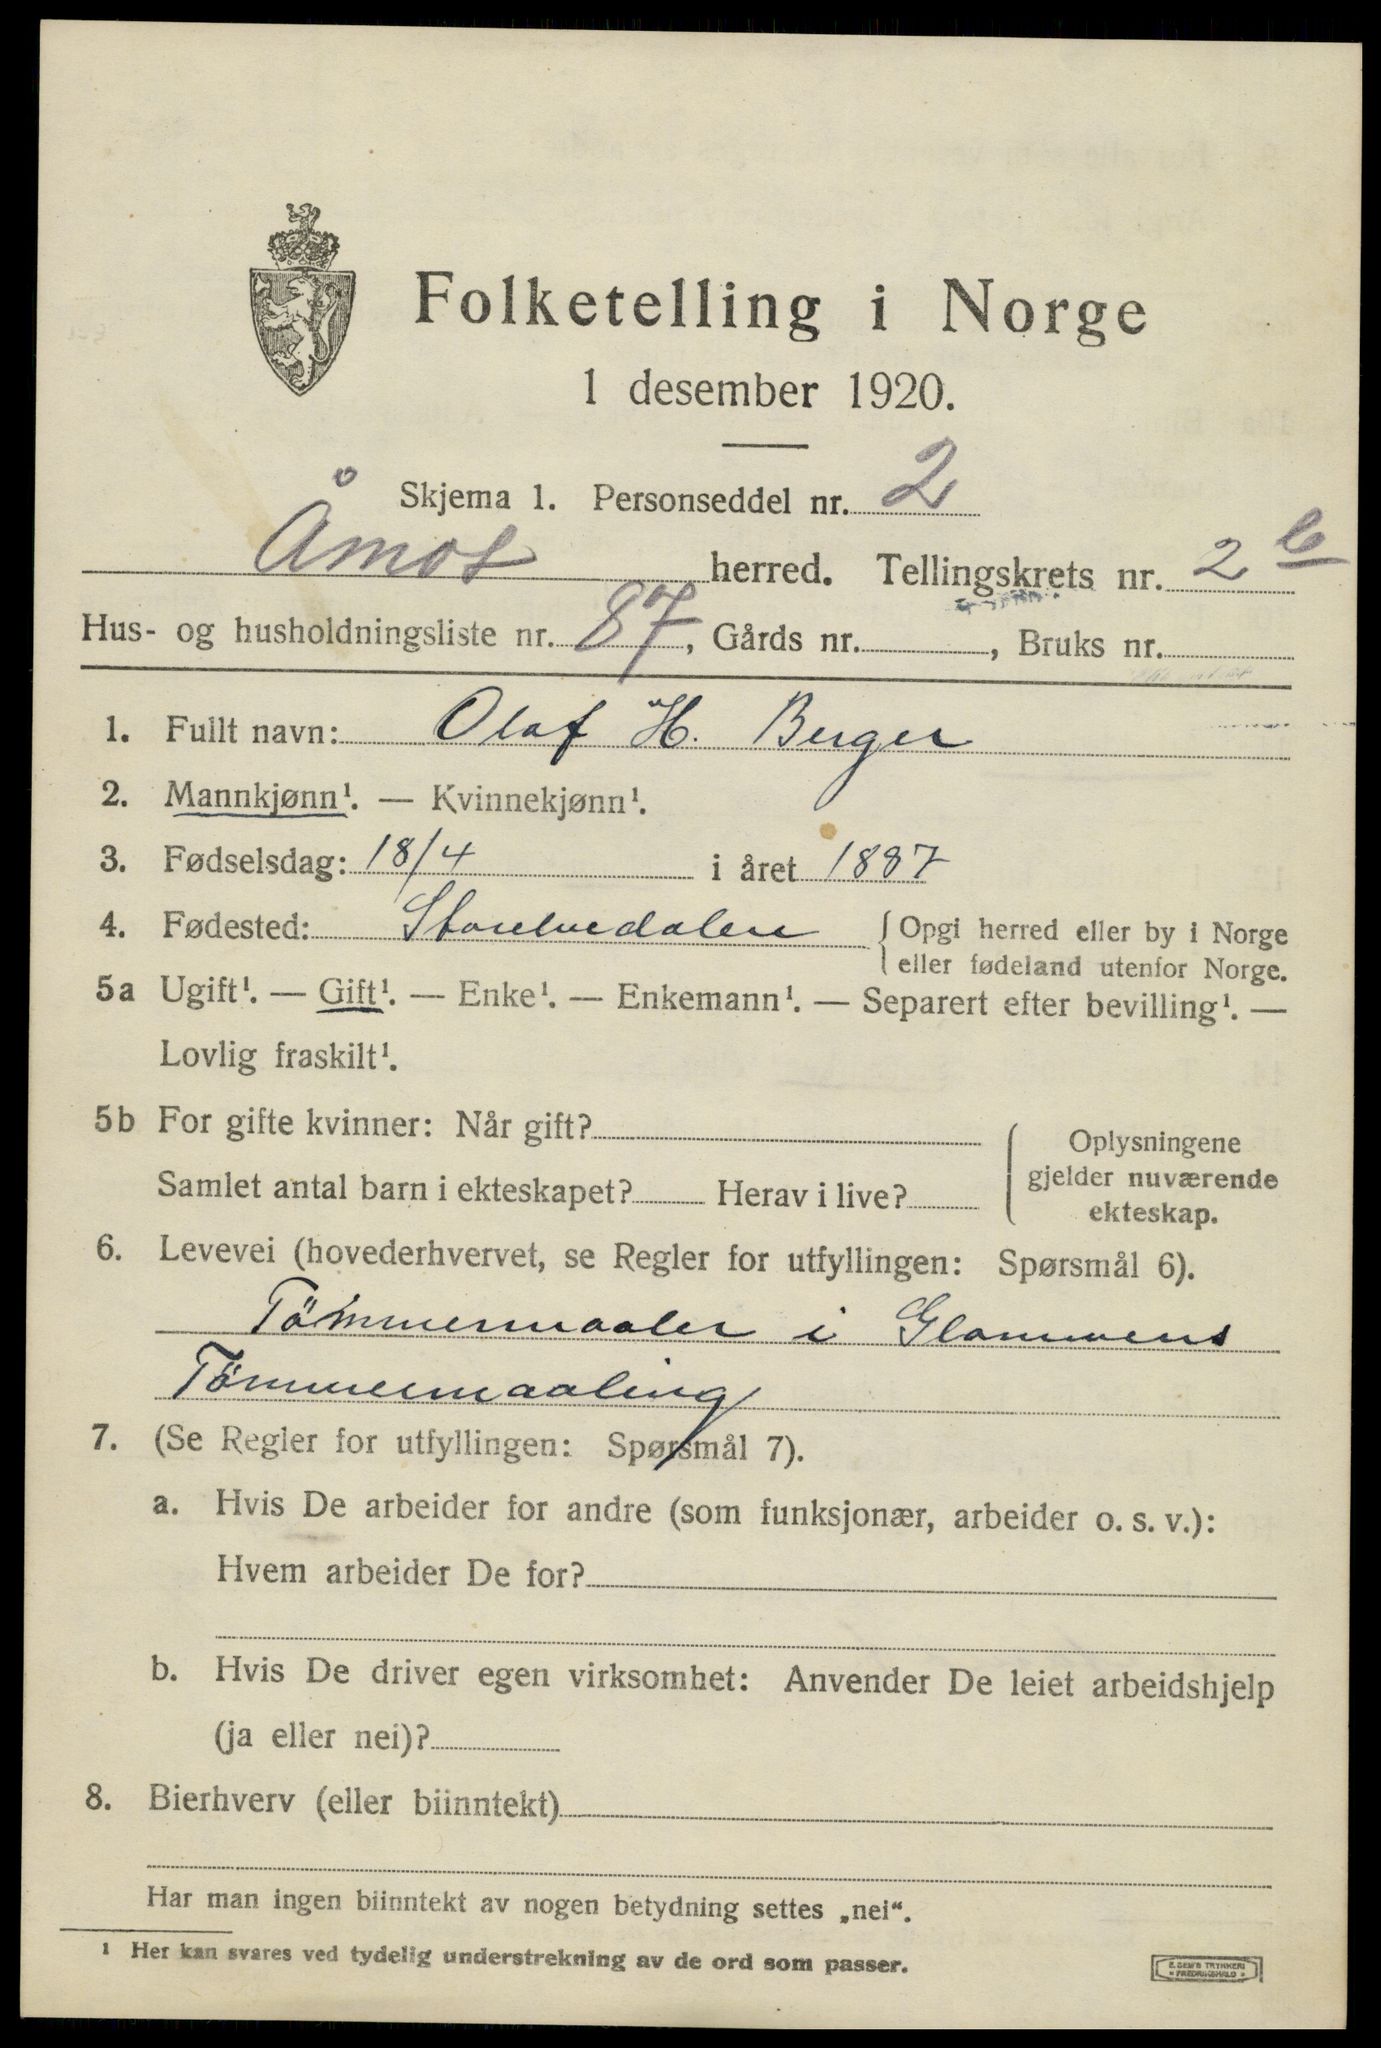 Folketelling i Norge
1 desember 1920.
Skjema 1. Personseddel nr. 2
Åmot herred. Tellingskrets nr. 2 b
Hus- og husholdningsliste nr. 87, Gårds nr. , Bruks nr.
1. Fullt navn: Olaf H. Berger
2. Mannkjønn¹. — Kvinnekjønn¹.
3. Fødselsdag: 18/4 i året 1887
4. Fødested: Storelvedalen { Opgi herred eller by i Norge
eller fødeland utenfor Norge.
5a Ugift¹. — Gift¹. — Enke¹. — Enkemann¹. — Separert efter bevilling¹. —
Lovlig fraskilt¹.
5b For gifte kvinner: Når gift?
Samlet antal barn i ekteskapet? Herav i live?
Oplysningene
gjelder nuværende
ekteskap.
6. Levevei (hovederhvervet, se Regler for utfyllingen: Spørsmål 6).
Tömmermaaler i Glommens
Tömmermaaling
7. (Se Regler for utfyllingen: Spørsmål 7).
a. Hvis De arbeider for andre (som funksjonær, arbeider o. s. v.):
Hvem arbeider De for?
b. Hvis De driver egen virksomhet: Anvender De leiet arbeidshjelp
(ja eller nei)?
8. Bierhverv (eller biinntekt)
Har man ingen biinntekt av nogen betydning settes „nei“.
¹ Her kan svares ved tydelig understrekning av de ord som passer.
E. SEM'S TRYKKERI
FREDRIKSHALD